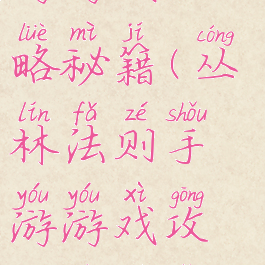 lüè mì jí cóng
略秘籍(丛
lín fǎ zé shǒu
林法则手
yóu yóu xì gōng
游游戏攻